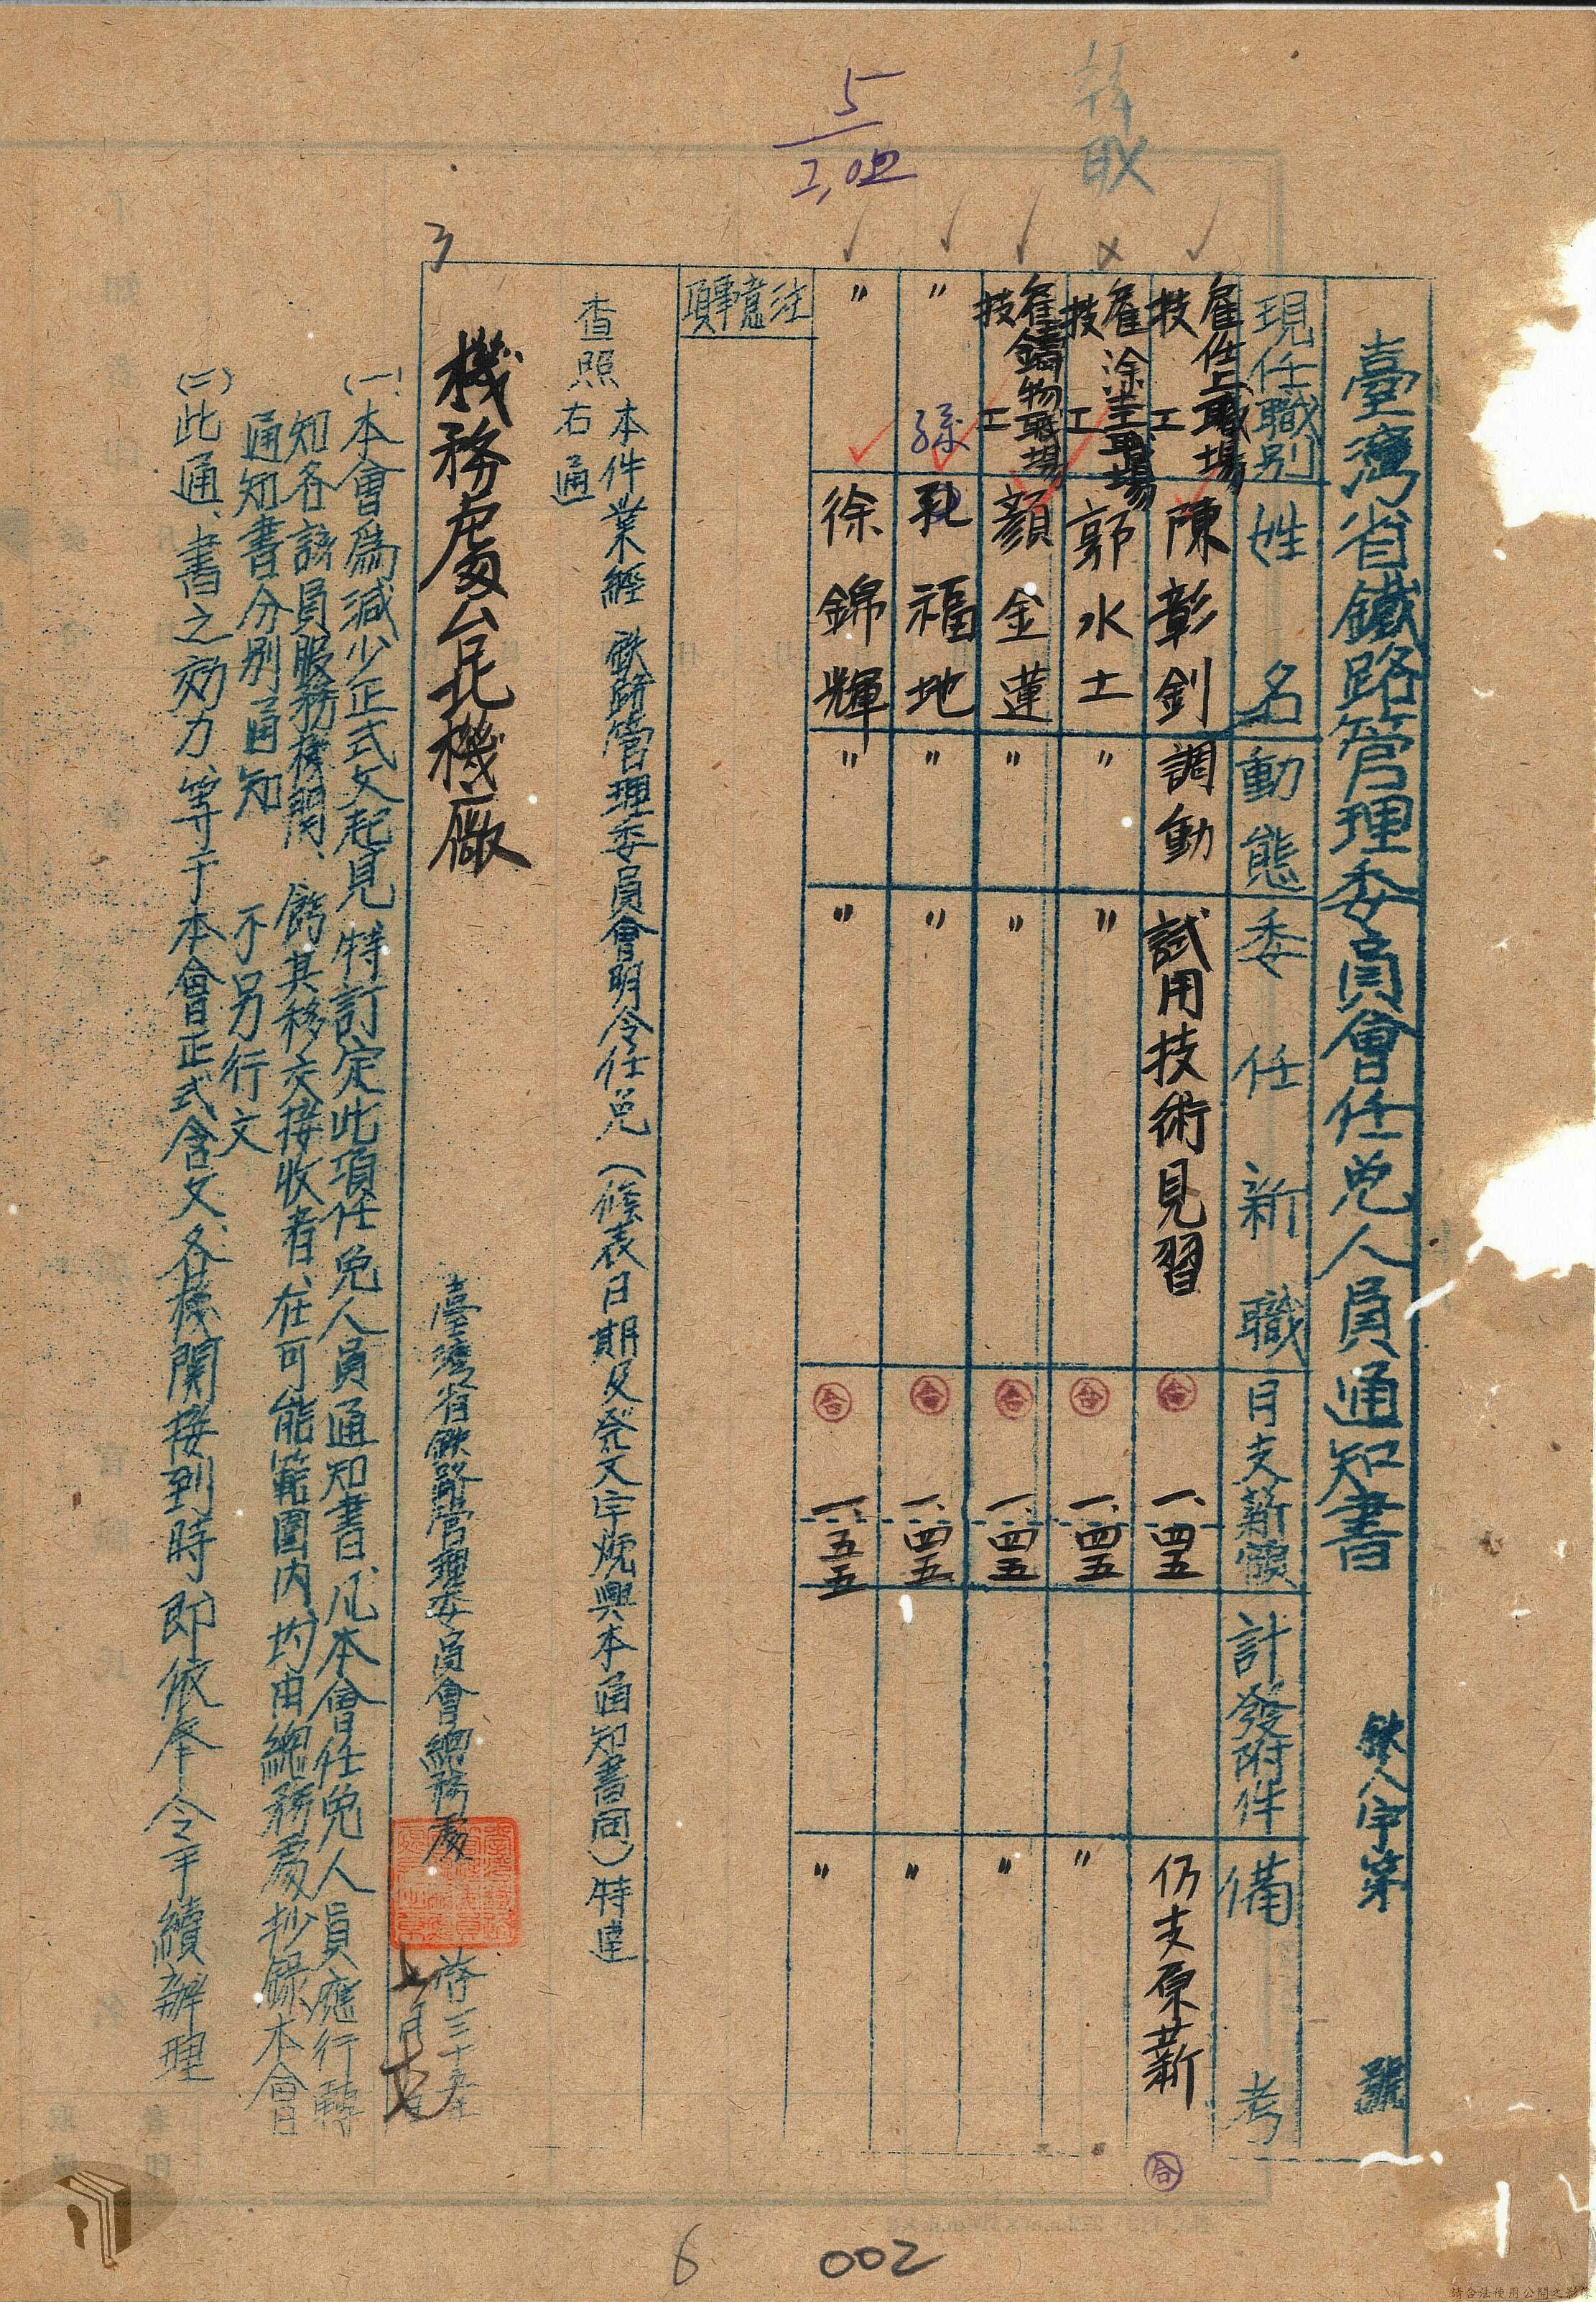 臺灣省鐵路管理委員會任免人員通知書 鉄人字第 號
現任職別 姓名 動態 委任新職 月支薪額 計發附件 備考
雇仕上職場技工 陳彰釗 調動 試用技術見習 合 一、四五 仍支原薪 合
雇塗工職場技工 郭水土 〃 〃 合 一、四五 〃
雇鑄物職場技工 顏金蓮 〃 〃 合 一、四五 〃
〃 孫福地 〃 〃 合 一、四五 〃
〃 徐錦輝 〃 〃 合 一、五五 〃
注意事項
本件業經 鉄路管理委員會明令任免(餘表日期及發文字號與本通知書同)特達
查照
右通
機務處台北機廠
臺灣省鉄路管理委員會總務處 啓三十五年
七月
(一)本會為減少正式文起見特訂定此項任免人員通知書、凡本會任免人員應行轉
知各該員服務機關、飭其移交接收者、在可能範圍內、均由總務處抄錄本會
通知書分別通知 不另行文
(二)此通、書之效力、等于本會正式令文、各機關接到時即依奉令手續辦理
5
2,02
取
3
6
002
請合法使用公開之影像